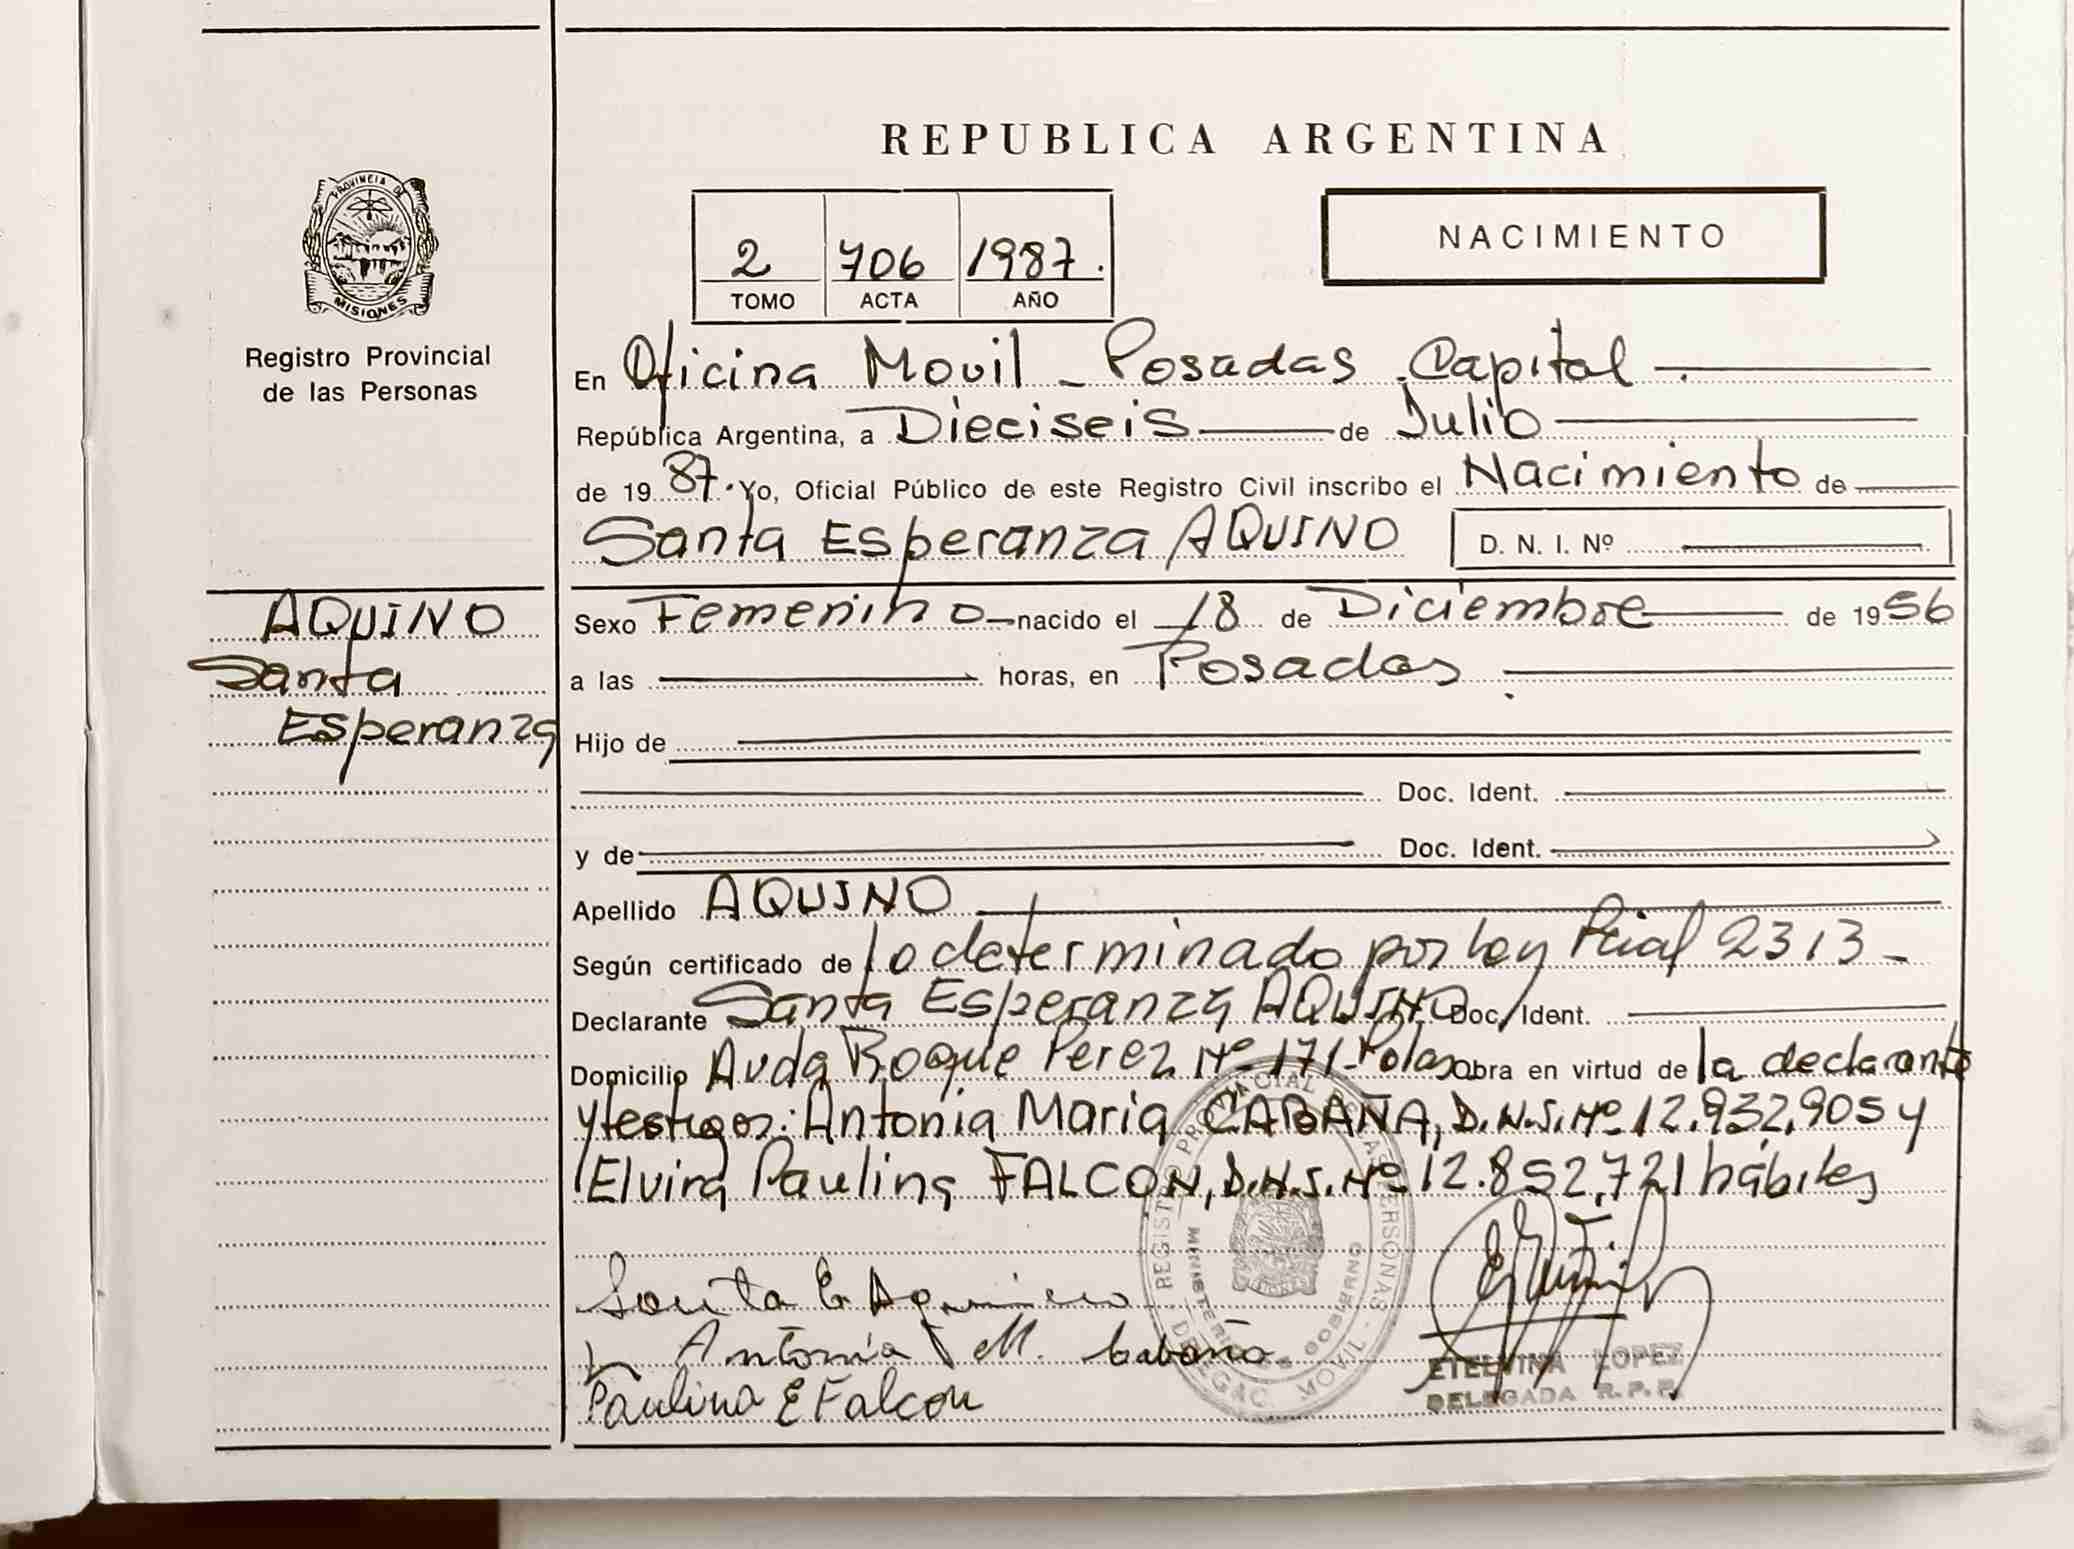 REPUBLICA ARGENTINA
PROVINCIA DE
MISIONES
Registro Provincial
de las Personas
NACIMIENTO
2 706 1987.
TOMO ACTA AÑO
En Oficina Movil - Posadas . Capital
República Argentina, a Dieciseis de Julio
de 19 87. Yo, Oficial Público de este Registro Civil inscribo el Nacimiento de
Santa Esperanza AQUINO D. N. I. Nº
AQUINO
Santa
Esperanza
Sexo Femenino nacido el 18 de Diciembre de 1956
a las horas, en Posadas
Hijo de
Doc. Ident.
y de Doc. Ident.
Apellido AQUINO
Según certificado de lo determinado por Ley Pcial 2313 -
Declarante Santa Esperanza AQUINO Doc. Ident.
Domicilio Avda Roque Perez Nº 171 - Pdas Obra en virtud de la declarante
y testigos: Antonia Maria CABAÑA, D.N.I. Nº 12.932.905 y
Elvira Paulina FALCON, D.N.I. Nº 12.852.721 hábiles
Santa E Aquino
Antonia M. Cabaña
Paulina E Falcon
REGISTRO PROVINCIAL DE LAS PERSONAS
MINISTERIO DE GOBIERNO
DELEGAC. MOVIL
ETELVINA LOPEZ
DELEGADA R. P. P.